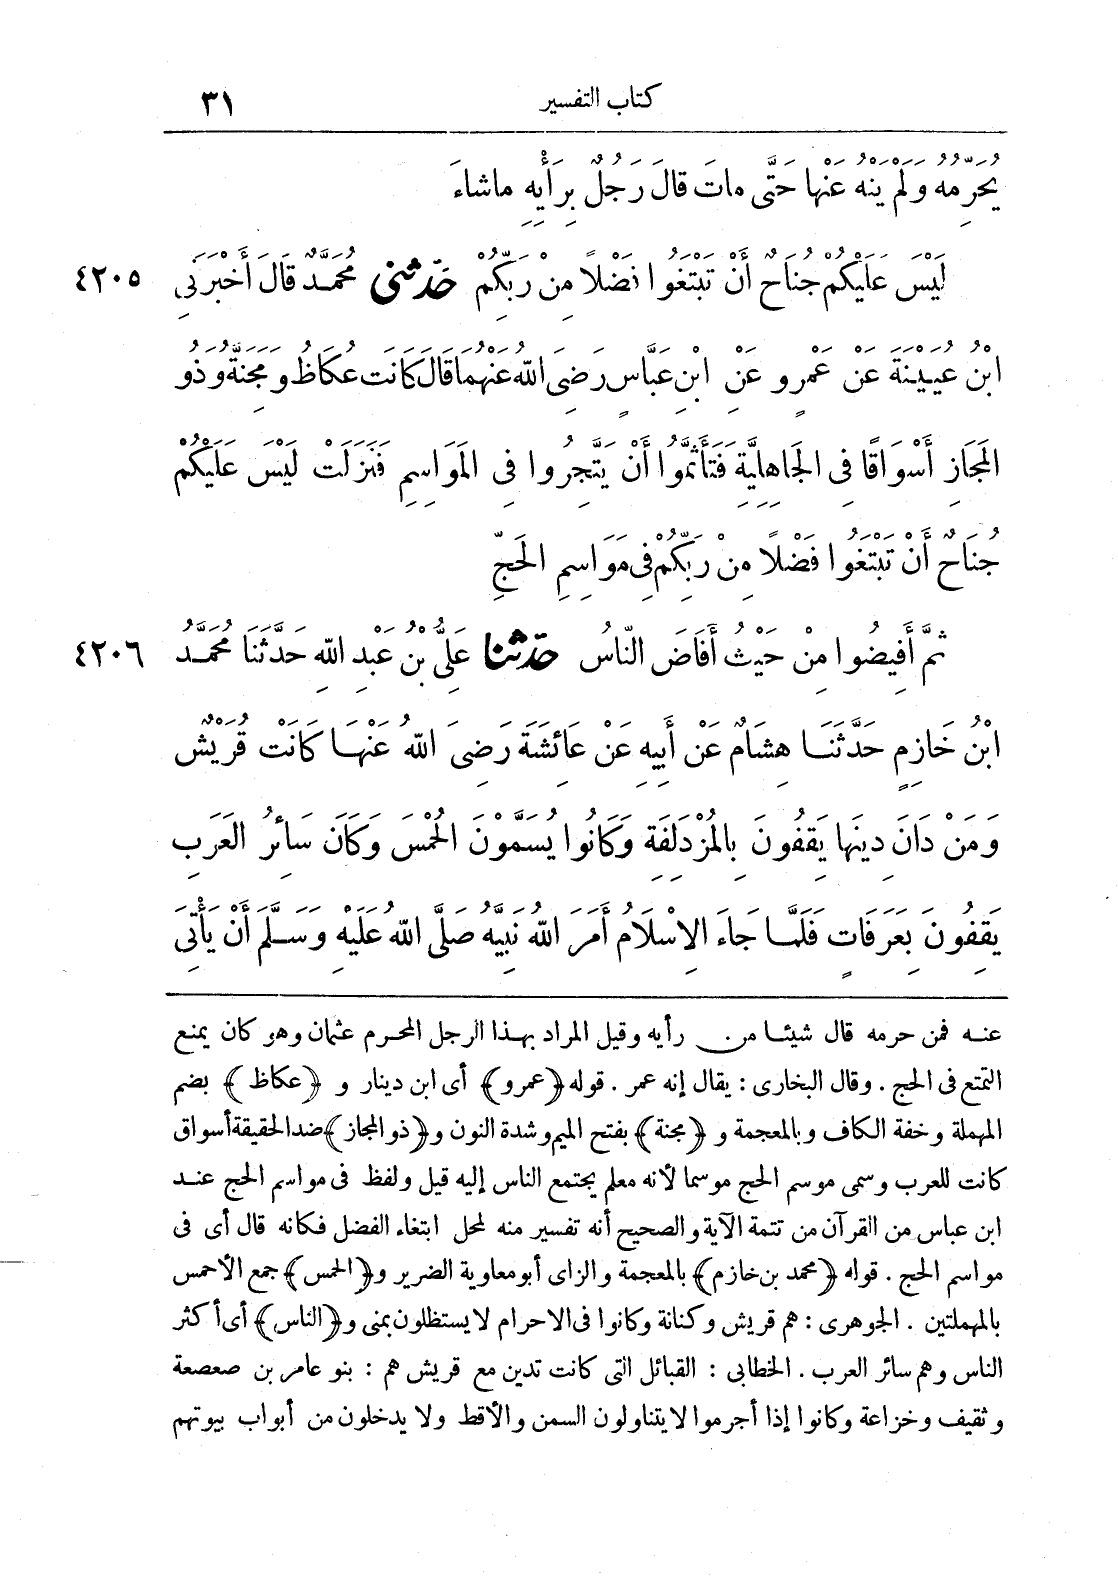 كتاب التفسير ٣١
يُحَرِّمُهُ وَلَمْ يَنْهَ عَنْهَا حَتَّى مَاتَ قَالَ رَجُلٌ بِرَأْيِهِ مَاشَاءَ
٤٢٠٥ لَيْسَ عَلَيْكُمْ جُنَاحٌ أَنْ تَبْتَغُوا فَضْلاً مِنْ رَبِّكُمْ حَدَّثَنِى مُحَمَّدٌ قَالَ أَخْبَرَنِى
ابْنُ عُيَيْنَةَ عَنْ عَمْرٍو عَنِ ابْنِ عَبَّاسٍ رَضِىَ اللهُ عَنْهُمَا قَالَ كَانَتْ عُكَاظُ وَمِجَنَّةُ وَذُو
الْمَجَازِ أَسْوَاقًا فِى الْجَاهِلِيَّةِ فَتَأَثَّمُوا أَنْ يَتَّجِرُوا فِى الْمَوَاسِمِ فَنَزَلَتْ لَيْسَ عَلَيْكُمْ
جُنَاحٌ أَنْ تَبْتَغُوا فَضْلاً مِنْ رَبِّكُمْ فِى مَوَاسِمِ الْحَجِّ
٤٢٠٦ ثُمَّ أَفِيضُوا مِنْ حَيْثُ أَفَاضَ النَّاسُ حَدَّثَنَا عَلِىُّ بْنُ عَبْدِ اللهِ حَدَّثَنَا مُحَمَّدُ
ابْنُ خَازِمٍ حَدَّثَنَا هِشَامٌ عَنْ أَبِيهِ عَنْ عَائِشَةَ رَضِىَ اللهُ عَنْهَا كَانَتْ قُرَيْشٌ
وَمَنْ دَانَ دِينَهَا يَقِفُونَ بِالْمُزْدَلِفَةِ وَكَانُوا يُسَمَّوْنَ الْحُمْسَ وَكَانَ سَائِرُ الْعَرَبِ
يَقِفُونَ بِعَرَفَاتٍ فَلَمَّا جَاءَ الإِسْلَامُ أَمَرَ اللهُ نَبِيَّهُ صَلَّى اللهُ عَلَيْهِ وَسَلَّمَ أَنْ يَأْتِىَ
عنه فمن حرمه قال شيئا من رأيه وقيل المراد بهذا الرجل المحرم عثمان وهو كان يمنع
التمتع فى الحج . وقال البخارى : يقال إنه عمر . قوله ﴿عمرو﴾ أى ابن دينار و ﴿عكاظ﴾ بضم
المهملة وخفة الكاف وبالمعجمة و ﴿مجنة﴾ بفتح الميم وشدة النون و ﴿ذو المجاز﴾ ضد الحقيقة أسواق
كانت للعرب وسمى موسم الحج موسما لأنه معلم يجتمع الناس إليه قيل ولفظ فى مواسم الحج عند
ابن عباس من القرآن من تتمة الآية والصحيح أنه تفسير منه لمحل ابتغاء الفضل فكانه قال أى فى
مواسم الحج . قوله ﴿محمد بن خازم﴾ بالمعجمة والزاى أبو معاوية الضرير و ﴿الحمس﴾ جمع الأحمس
بالمهملتين . الجوهرى : هم قريش وكنانة وكانوا فى الاحرام لا يستظلون بمنى و ﴿الناس﴾ أى أكثر
الناس وهم سائر العرب . الخطابى : القبائل التى كانت تدين مع قريش هم : بنو عامر بن صعصعة
وثقيف وخزاعة وكانوا إذا أجرموا لا يتناولون السمن والأقط ولا يدخلون من أبواب بيوتهم